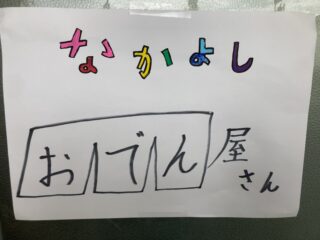 なかよし
おでん屋さん